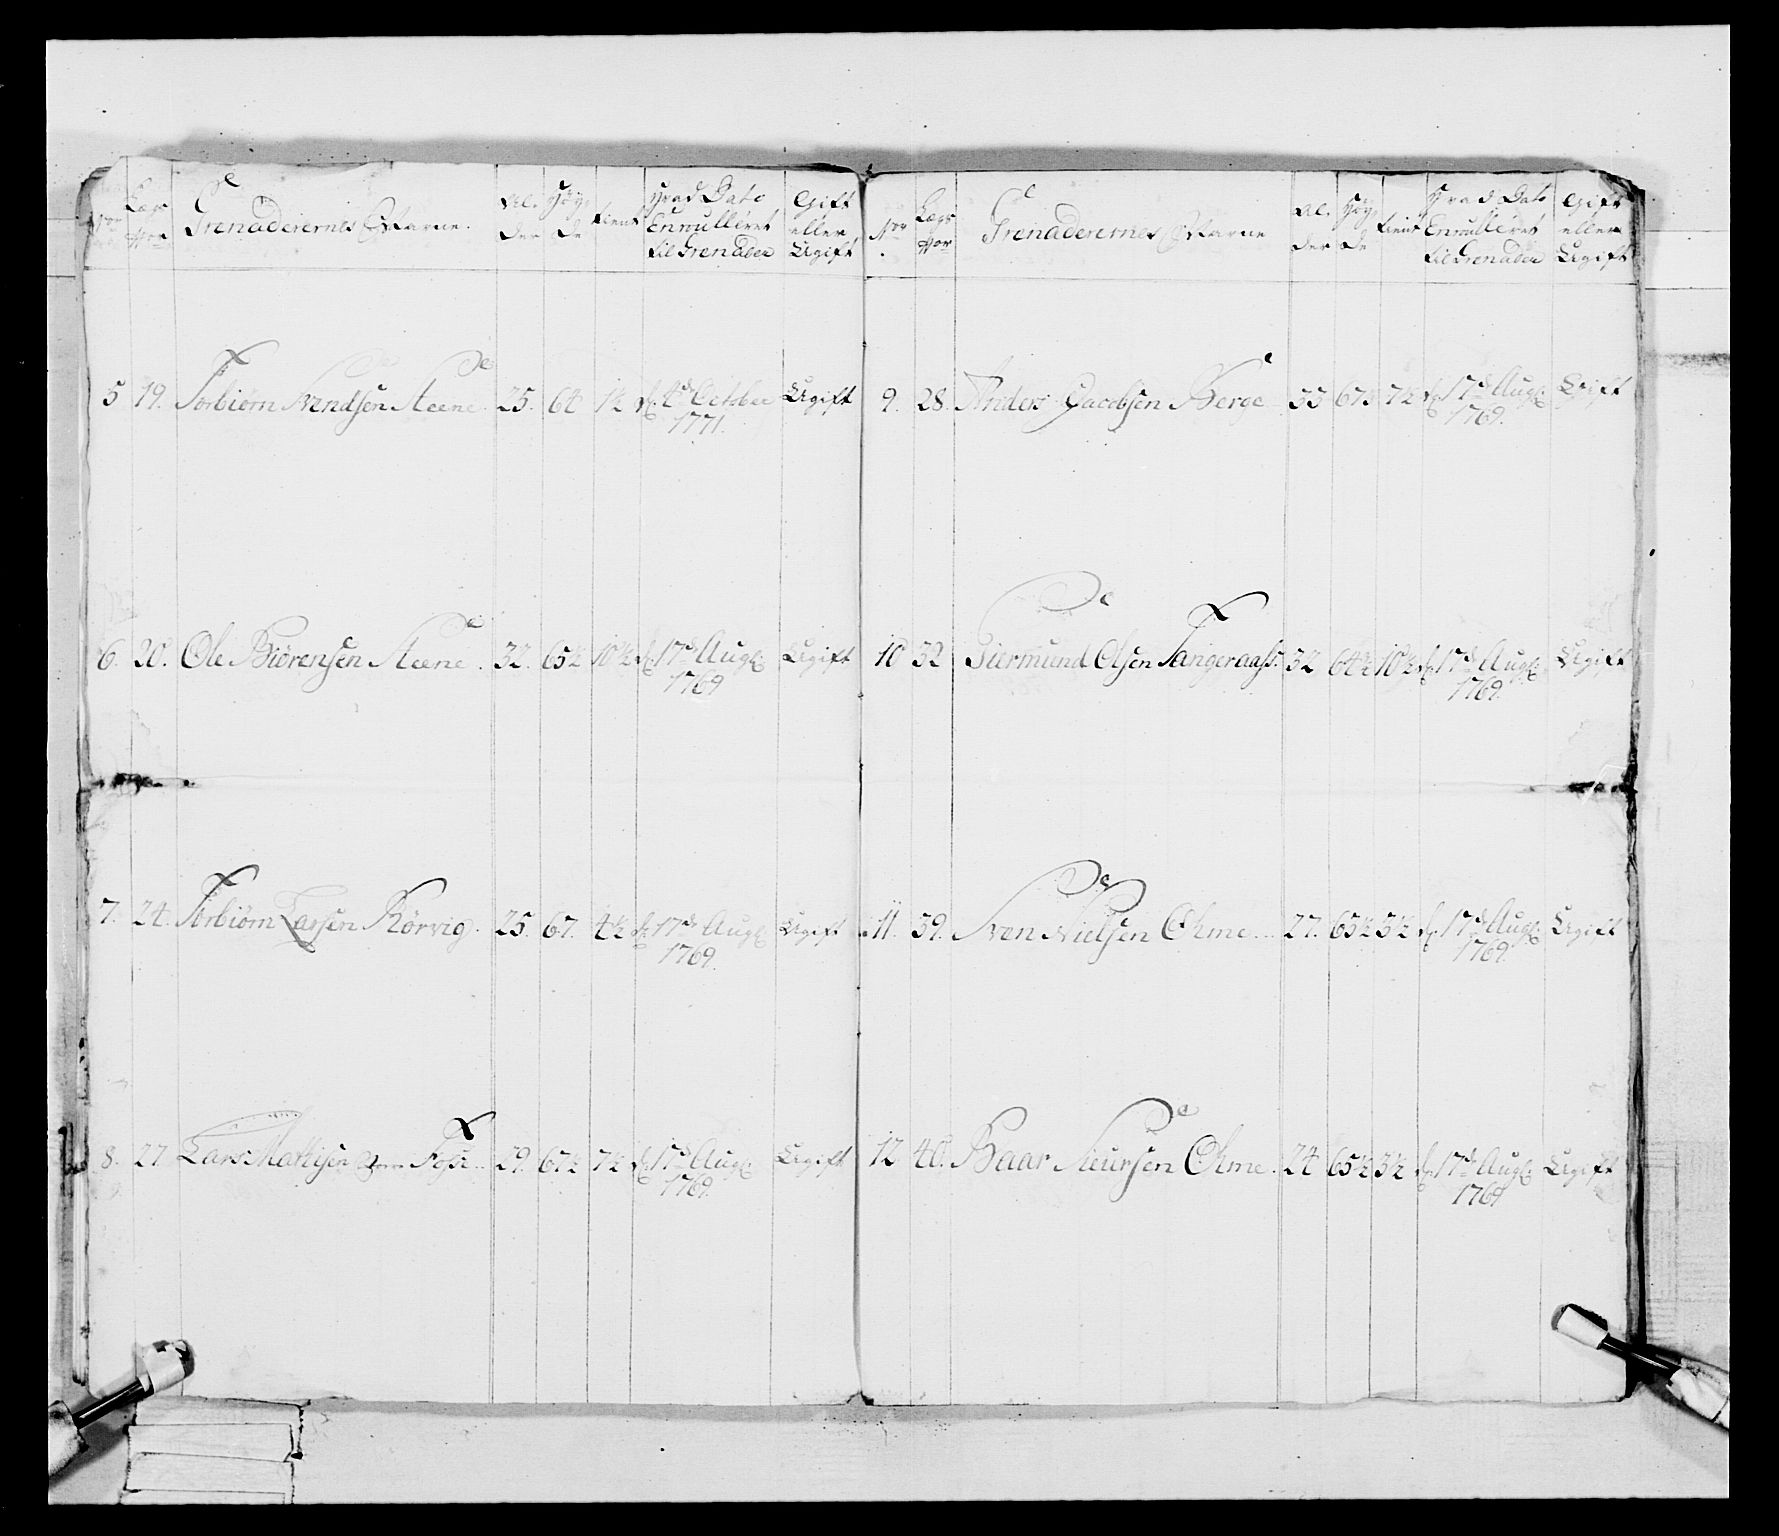 No: Lægs No: Grenaderernes Nafne. Al- der Höy- de tient Hvad Dato Enrulleret til Grenader Gift eller Ugift
5 19. Torbiörn Svendsen Aene. 25. 64 1½ d. 4de October 1771. Ugift
6. 20. Ole Biörensen Aene. 32. 65½ 10½ d. 17de Aug: 1769 Ugift
7. 24. Torbiörn Larsen Rörvig. 25. 67. 4½ d. 17de Aug: 1769. Ugift
8. 27 Lars Mathisen Fosse. 29. 67½ 7½ d. 17de Aug: 1769. Ugift
No: Lægs No: Grenaderernes Nafne Al- der Höy- de tient Hvad Dato Enrulleret til Grenader Gift eller Ugift
9. 28. Anders Jacobsen Berge 33 67½ 7½ d. 17de Aug: 1769. Gift
10 32 Giermund Olsen Tangeraass. 32 64½ 10½ d. 17de Aug: 1769. Ugift
11. 39. Sven Nielsen Ohme. 27. 65½ 3½ d. 17de Aug: 1769. Ugift
12 40. Baar Siursen Ohme. 24 65½ 3½ d. 17de Aug: 1769 Ugift